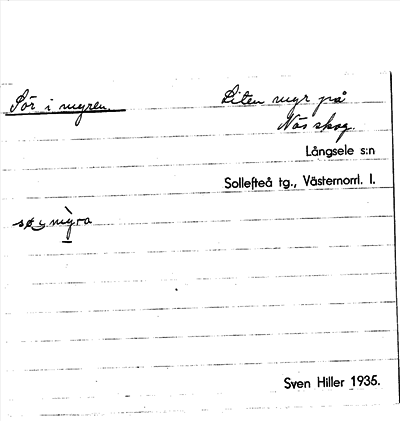 Sör i myren.
Liten myr på
Näs skog.
Långsele s:n
Sollefteå tg., Västernorrl. l.
sø_y mỳra
Sven Hiller 1935.